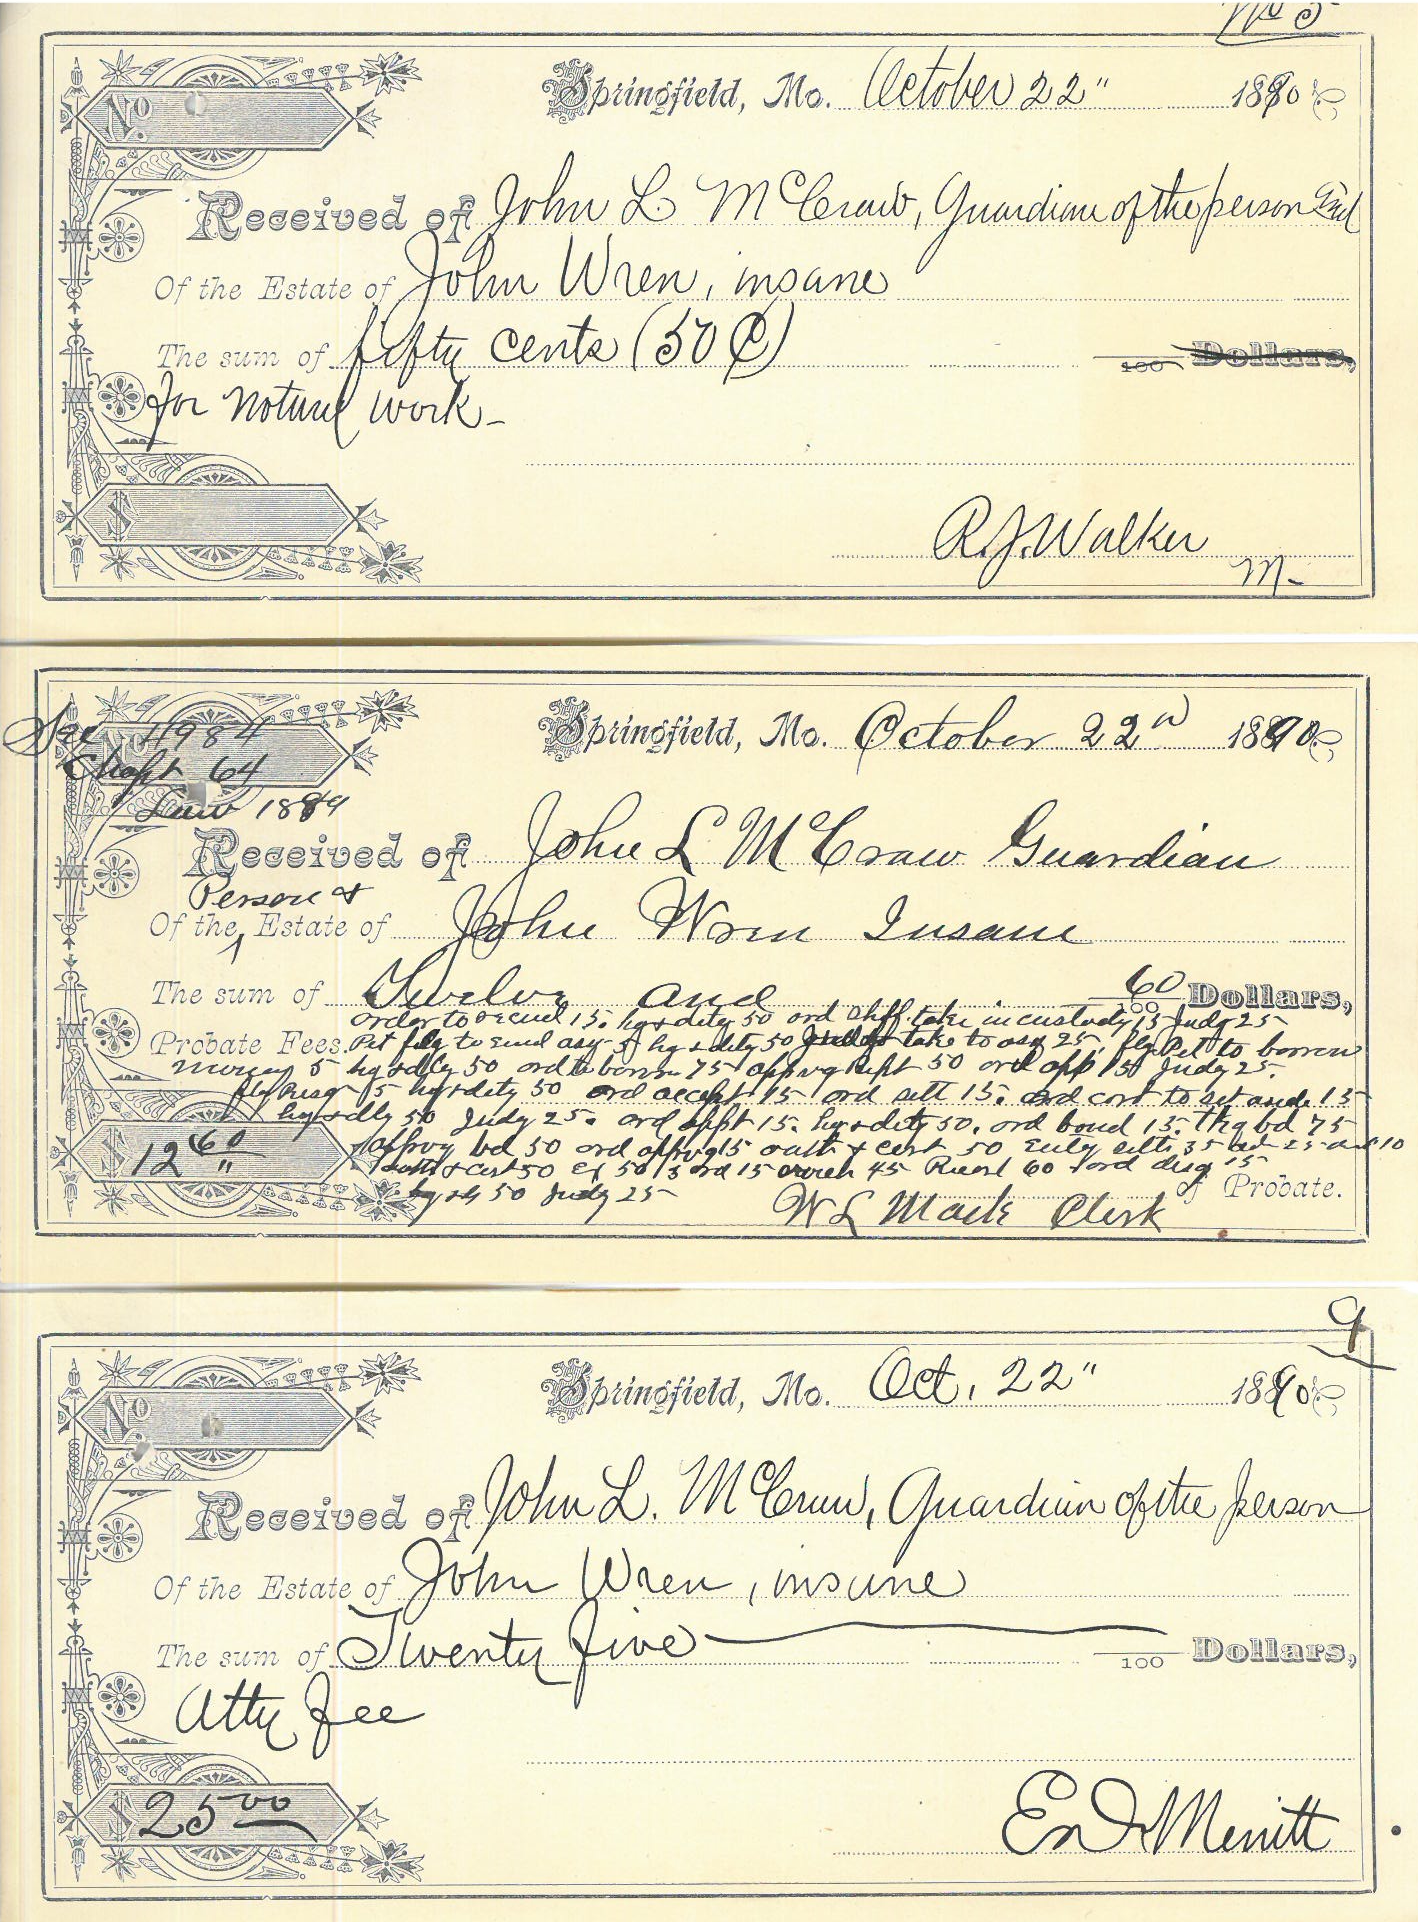 No 5
No.
Springfield, Mo. October 22" 1890
Received of John L McCraw, Guardian of the person and
Of the Estate of John Wren, insane
The sum of fifty cents (50 ¢) 100 Dollars,
for notary work -
$
R. J. Walker
M-
See 4984
Chapt 64
Law 1889
Springfield, Mo. October 22" 1890
Received of John L McCraw Guardian
Person &
Of the Estate of John Wren Insane
The sum of Twelve and 60/100 Dollars,
order to 15. hg & dcty 50 ord Shff. take in custody 15 Judg 25
Probate Fees. Pet to asy 5 hg & dcty 50 take to asy 25, flg Pet to borrow
money 5 hg & dcty 50 ord to borrow 75 apprvg Rept 50 ord app 15 Judg 25.
flg Resg 5 hg & dcty 50 ord accept 15 ord sett 15. ord cost to set aside 15
hg & dcty 50 Judg 25. ord appt 15. hg & dcty 50. ord bond 15. tkg bd 75
apprvg bd 50 ord apprvg 15 oath & cert 50 setts 35 ad 25 10
oath & cert 50 50 ord 15 45 Record 60 ord disg 15
hg 50 Judg 25
$ 12 60
of Probate.
W L Mack Clerk
9
No.
Springfield, Mo. Oct. 22" 1890
Received of John L. McCraw, Guardian of the person
Of the Estate of John Wren, insane
The sum of Twenty five 100 Dollars,
Atty fee
$ 25 00
Merritt